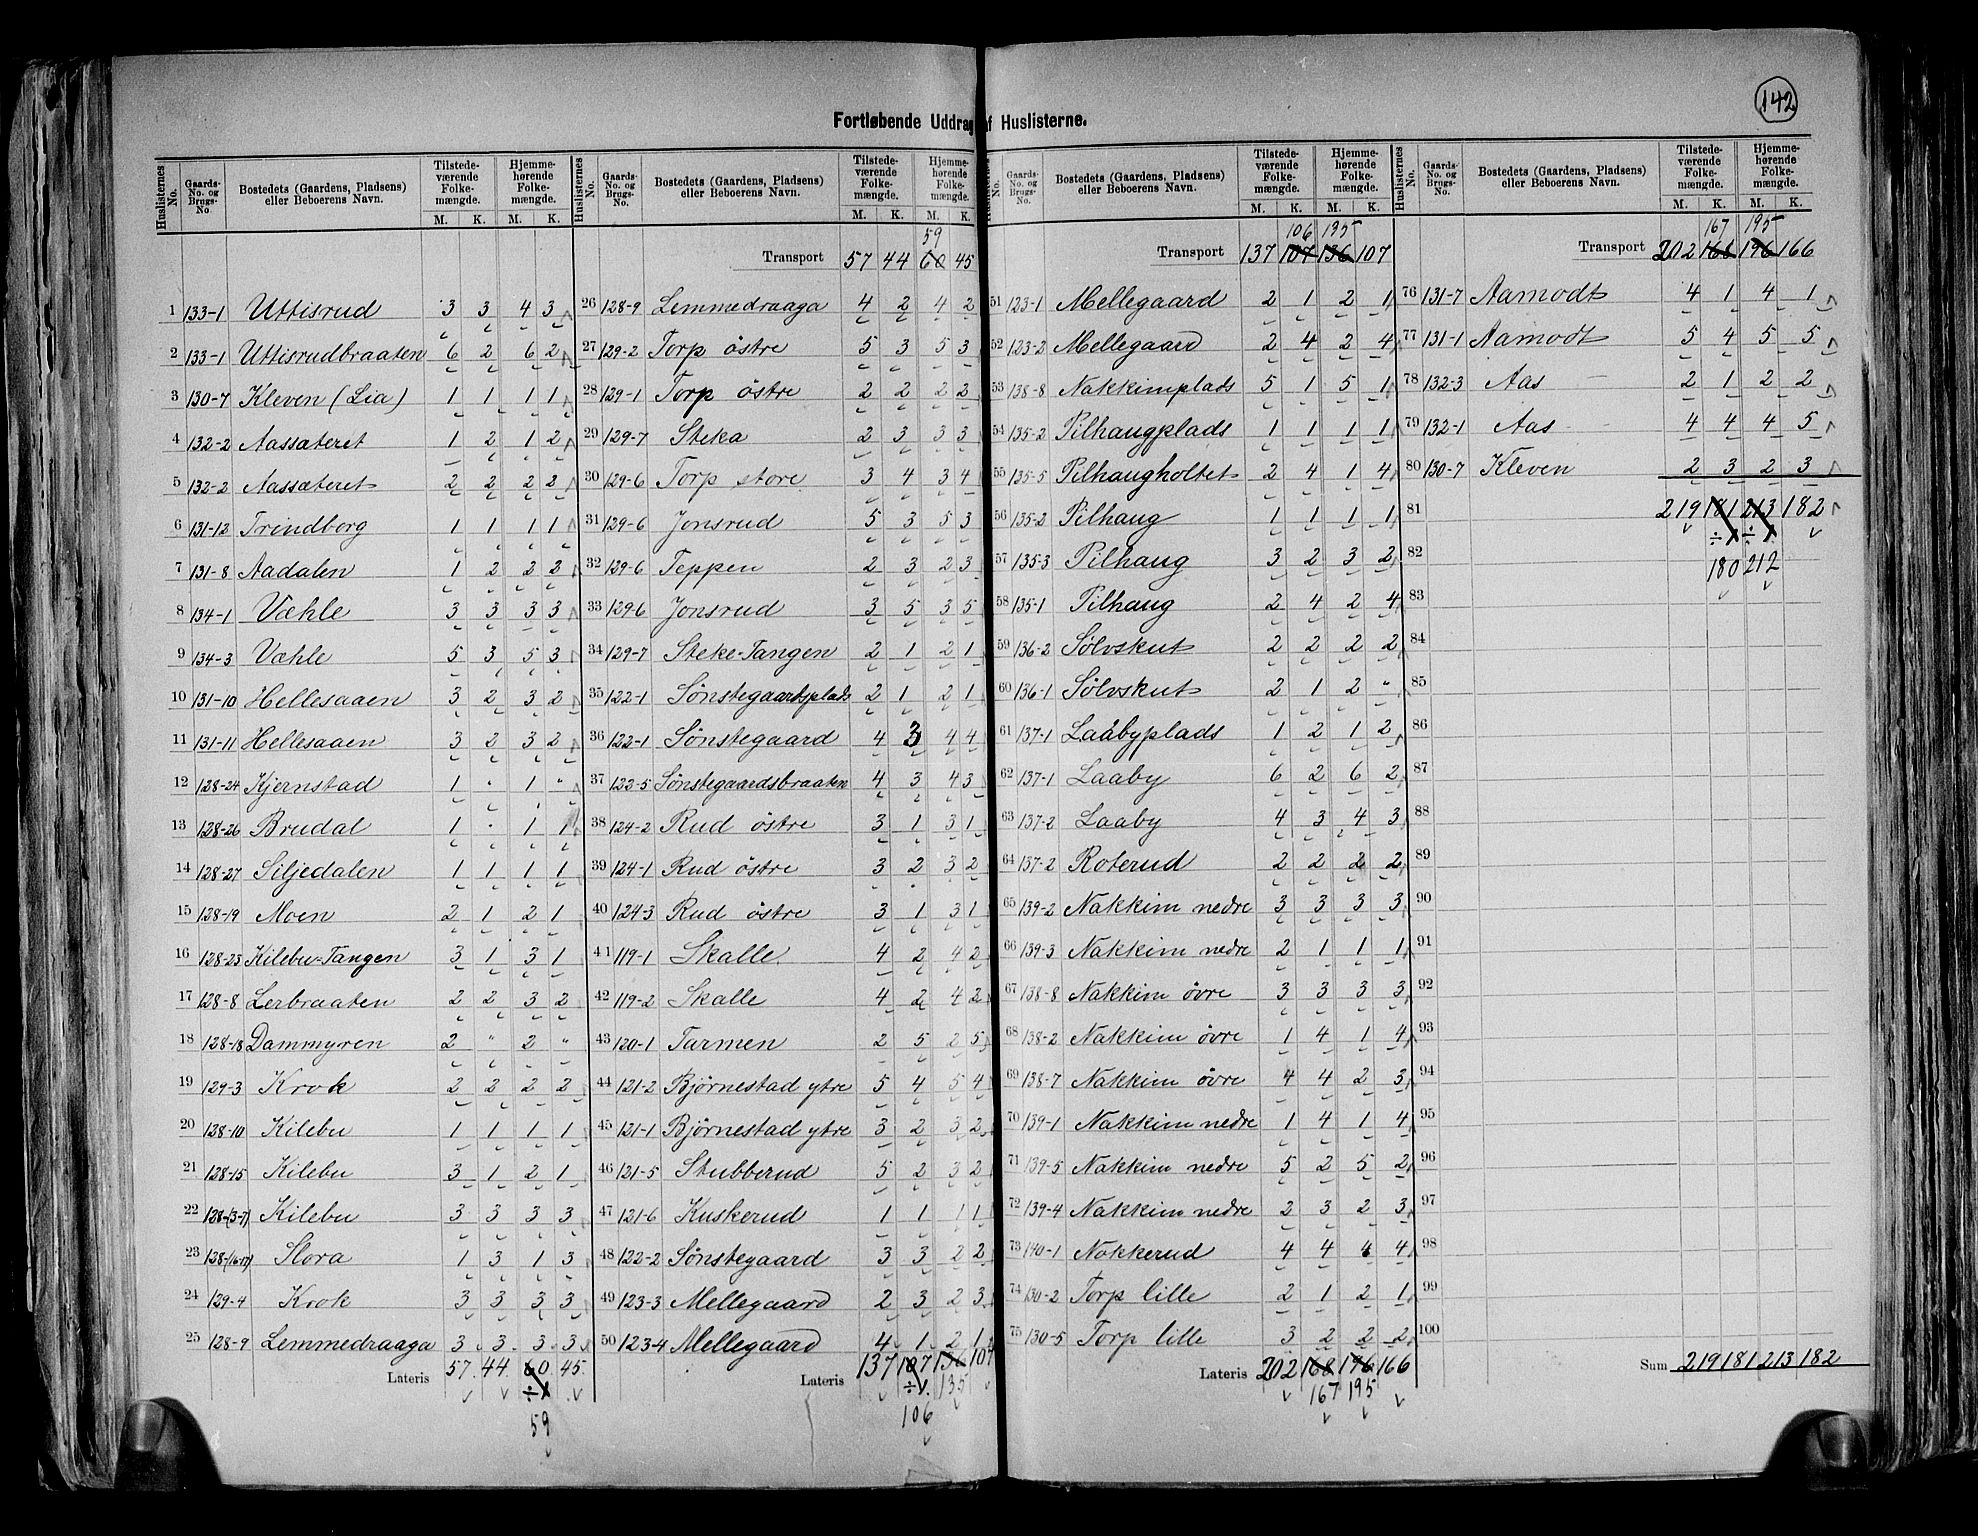 142
Fortløbende Uddrag af Huslisterne.
Huslisternes No. Gaards-No. og Brugs-No. Bostedets (Gaardens, Pladsens) eller Beboerens Navn. Tilstede-værende Folke-mængde. M. K. Hjemme-hørende Folke-mængde. M. K.
1 133-1 Uttisrud 3 3 4 3
2 133-1 Uttisrudbraaten 6 2 6 2
3 130-7 Kleven (Lia) 1 1 1 1
4 132-2 Aassæteret 1 2 1 2
5 132-2 Aassæteret 2 2 2 2
6 131-12 Trindborg 1 1 1 1
7 131-8 Aadalen 1 2 2 2
8 134-1 Væhle 3 3 3 3
9 134-3 Væhle 5 3 5 3
10 131-10 Hellesaaen 3 2 3 2
11 131-11 Hellesaaen 3 2 3 2
12 128-24 Kjernstad 1 " 1 "
13 128-26 Brudal 1 " 1 1
14 128-27 Siljedalen 1 1 1 1
15 128-19 Moen 2 1 2 1
16 128-23 Kilebu-Tangen 3 1 3 1
17 128-8 Lerbraaten 2 2 3 2
18 128-18 Dammyren 2 " 2 "
19 129-3 Krok 2 2 2 2
20 128-10 Kilebu 1 1 1 1
21 128-15 Kilebu 3 1 2 1
22 128-(3-7) Kilebu 3 3 3 3
23 128-(16-17) Slora 1 3 1 3
24 129-4 Krok 3 3 3 3
25 128-9 Lemmedraaga 3 3 3 3
Lateris 57 44 60 45
÷1
59
Huslisternes No. Gaards-No. og Brugs-No. Bostedets (Gaardens, Pladsens) eller Beboerens Navn. Tilstede-værende Folke-mængde. M. K. Hjemme-hørende Folke-mængde. M. K.
59
Transport 57 44 60 45
26 128-9 Lemmedraaga 4 2 4 2
27 129-2 Torp östre 5 3 5 3
28 129-1 Torp östre 2 2 2 2
29 129-7 Steka 2 3 3 3
30 129-6 Torp store 3 4 3 4
31 129-6 Jonsrud 5 3 5 3
32 129-6 Teppen 2 3 2 3
33 129-6 Jonsrud 3 5 3 5
34 129-7 Steke-Tangen 2 1 2 1
35 122-1 Sønstegaardsplads 2 1 2 1
36 122-1 Sønstegaard 4 3 4 4
37 122-5 Sønstegaardsbraaten 4 3 4 3
38 124-2 Rud östre 3 1 3 1
39 124-1 Rud östre 3 2 3 2
40 124-3 Rud östre 3 1 3 1
41 119-1 Skalle 4 2 4 2
42 119-2 Skalle 4 2 4 2
43 120-1 Turmen 2 5 2 5
44 121-2 Bjørnestad ytre 5 4 5 4
45 121-1 Bjørnestad ytre 3 2 3 2
46 121-5 Stubberud 5 2 3 2
47 121-6 Kuskerud 1 1 1 1
48 122-2 Sønstegaard 3 3 2 2
49 123-3 Mellegaard 2 3 2 3
50 123-4 Mellegaard 4 1 2 1
Lateris 137 107 136 107
÷1 135
106
Huslisternes No. Gaards-No. og Brugs-No. Bostedets (Gaardens, Pladsens) eller Beboerens Navn. Tilstede-værende Folke-mængde. M. K. Hjemme-hørende Folke-mængde. M. K.
106 135
Transport 137 107 136 107
51 123-1 Mellegaard 2 1 2 1
52 123-2 Mellegaard 2 4 2 4
53 138-8 Nakkimplads 5 1 5 1
54 135-2 Pilhaugplads 1 1 1 1
55 135-5 Pilhaugholtet 2 4 1 4
56 135-2 Pilhaug 1 1 1 1
57 135-3 Pilhaug 3 2 3 2
58 135-1 Pilhaug 2 4 2 4
59 136-2 Sølvskut 2 2 2 2
60 136-1 Sølvskut 2 1 2 "
61 137-1 Laabyplads 1 2 1 2
62 137-1 Laaby 6 2 6 2
63 137-2 Laaby 4 3 4 3
64 137-2 Roterud 2 2 2 2
65 139-2 Nakkim nedre 3 3 3 3
66 139-3 Nakkim nedre 2 1 1 1
67 138-8 Nakkim övre 3 3 3 3
68 138-2 Nakkim övre 1 4 1 4
69 138-7 Nakkim övre 4 4 2 3
70 139-1 Nakkim nedre 1 4 1 4
71 139-5 Nakkim nedre 5 2 5 2
72 139-4 Nakkim nedre 2 3 2 3
73 140-1 Nokkerud 4 4 4 4
74 130-2 Torp lille 2 1 2 1
75 130-5 Torp lille 3 2 2 2
Lateris 202 168 196 166
167 195
Huslisternes No. Gaards-No. og Brugs-No. Bostedets (Gaardens, Pladsens) eller Beboerens Navn. Tilstede-værende Folke-mængde. M. K. Hjemme-hørende Folke-mængde. M. K.
167 195
Transport 202 168 196 166
76 131-7 Aamodt 4 1 4 1
77 131-1 Aamodt 5 4 5 5
78 132-3 Aas 2 1 2 2
79 132-1 Aas 4 4 4 5
80 130-7 Kleven 2 3 2 3
81 219 181 213 182
÷1 ÷1
82 180 212
83
84
85
86
87
88
89
90
91
92
93
94
95
96
97
98
99
100
Sum 219 181 213 182